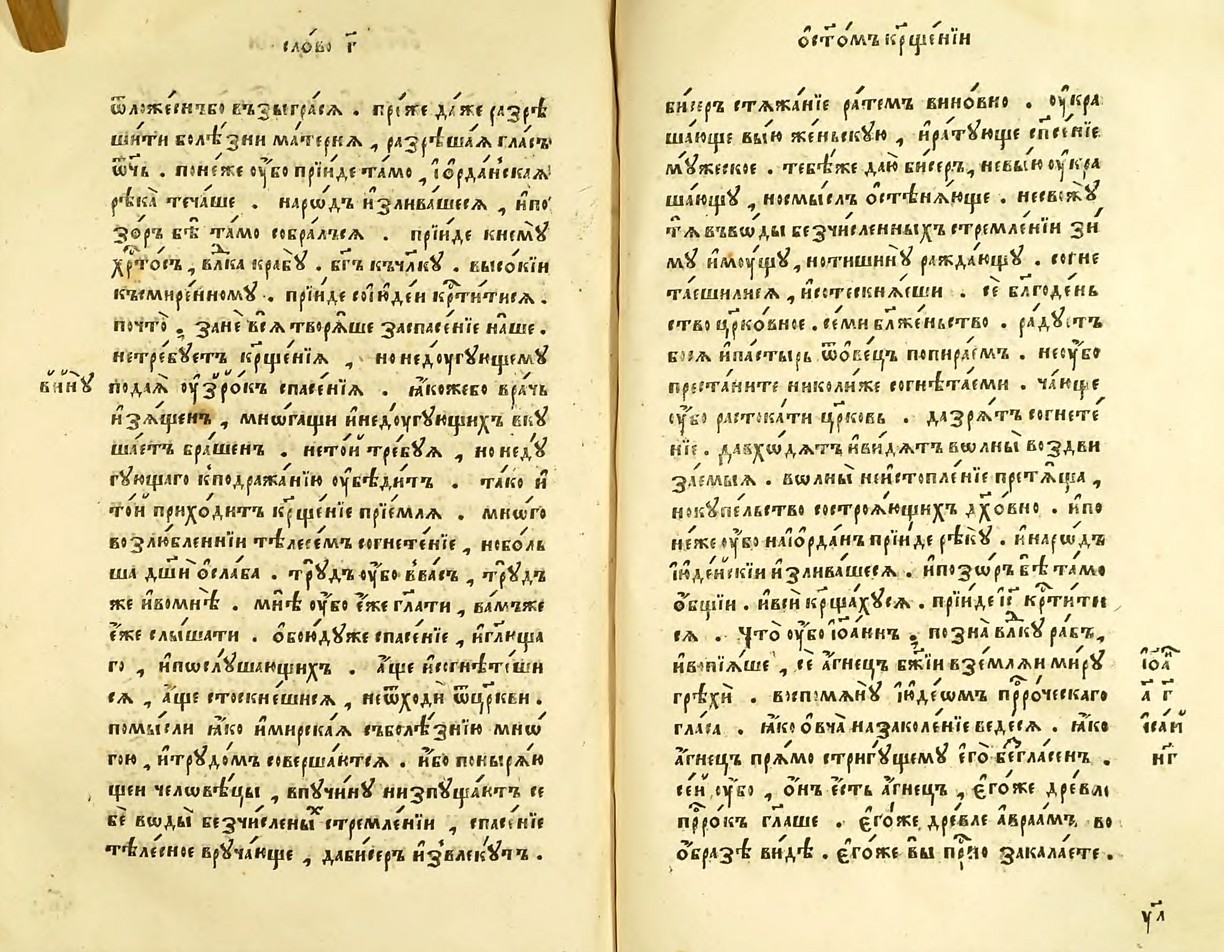 сло́во г҃
ѿложе́снъбо възыгра́сѧ . пре́же да́же разрѣ
ши́ти болѣ́зни ма́терня , разрѣша́ѧ гла́съ
ѿчь . поне́же ᲂу҆́бо прїи́де та́мо , і҆ѻрда́нскаѧ
рѣка̀ теча́ше . наро́дъ и҆злива́шесѧ , и҆по
зо́ръ бѣ̀ та́мо собра́лъсѧ . прїи́де кнемꙋ̀
хрⷭ҇то́съ , влⷣка крабꙋ̀ . бг҃ъ къчл҃кꙋ . высо́кїи
късмире́нномꙋ . прїи́де соі҆юде́и крⷭ҇ти́тисѧ .
почто̀ , занѐ всѧ̀ творѧ́ше заспасе́нїе на́ше .
нетре́бꙋетъ крⷭ҇ще́нїѧ , нонедоугꙋ́ющемꙋ
подаѧ̀ ᲂу҆зро́къ спасе́нїѧ . ꙗ҆́коже́бо вра́чь
и҆зѧ́щенъ , мно́гащи и҆недоугꙋ́ющихъ вкꙋ
ша́етъ бра́шенъ . нето́и тре́бꙋѧ , нонедꙋ
гꙋ́ющаго кподража́нїю ᲂу҆бѣди́тъ . та́ко и҆
то́и прихо́дитъ крⷭ҇ще́нїе прїе́млѧ . мно́го
возлю́бленнїи тѣлесе́мъ согнете́нїе , нобо́ль
ша дш҃и ѻ҆сла́ба . трꙋ́дъ ᲂу҆́бо ввасъ , трꙋ́дъ
же и҆вомнѣ̀ . мнѣ̀ ᲂу҆́бо е҆́же гл҃ати , ва́мъже
е҆́же слы́шати . ѻ҆бои́дꙋже спасе́нїе , и҆гл҃юща
го , и҆послꙋ́шающихъ . а҆́ще и҆согнѣте́ши
сѧ , а҆́ще стоскне́шисѧ , неѿходѝ ѿцр҃кви .
помы́сли ꙗ҆́ко и҆мирска́ѧ съболѣ́знїю мно́
гою , и҆трꙋдо́мъ соверша́ютсѧ . и҆́бо поныря́ю
щеи человѣ́цы , впꙋчи́нꙋ низпꙋща́ютъ се
бѐ во́ды безчи́слены́ⷯ стремле́нїи , спасе́нїе
тѣле́сное врꙋча́юще , даби́серъ и҆звлекꙋ́тъ .
винꙋ̀
ѻ҆ст҃о́мъ крⷭ҇ще́нїи
би́серъ стѧжа́нїе ра́темъ вино́вно . ᲂу҆кра
ша́юще вы́ю же́ньскꙋю , и҆ра́тꙋюще спⷭ҇е́нїе
мꙋ́жеское . тебѣ́же даю̀ би́серъ , невы́ю ᲂу҆кра
ша́ющꙋ , носмы́слъ ѻ҆стѣнѧ́юще . несвожꙋ̀
тѧ̀ въво́ды безчи́сленныхъ стремле́нїи зи́
мꙋ и҆моу́щꙋ , нотишинꙋ̀ ражда́ющꙋ . согне
та́ешилисѧ , и҆стескня́еши . сѐ бл҃годе́нь
ство црⷭ҇ко́вное . семѝ бл҃же́ньство . ра́дꙋетъ
босѧ и҆па́стырь ѿѻ҆ве́цъ попира́емъ . неᲂу҆́бо
преста́ните николи́же согнѣта́еми . ча́юще
ᲂу҆́бо растока́ти цр҃ковь . да́зрѧтъ согнете́
нїе . давхо́дѧтъ и҆ви́дѧтъ во́лны̀ воздви
за́емыѧ . во́лны̀ неи҆стопле́нїе претѧ́ща ,
нокꙋпе́льство состроѧ́ющихъ дх҃о́вно . и҆по
не́же ᲂу҆́бо наі҆ѻрда́нъ прїи́де рѣ́кꙋ . и҆наро́дъ
і҆юде́йскїи и҆злива́шесѧ . и҆позо́ръ бѣ̀ та́мо
ѻ҆́бщїи . и҆всѝ крⷭ҇ща́хꙋсѧ . прїи́де і҆с҃ крⷭ҇ти́ти
сѧ . что̀ ᲂу҆́бо і҆ѻа́ннъ , позна̀ влⷣкꙋ ра́бъ ,
и҆вопїѧ́ше , сѐ а҆́гнецъ бж҃їи взе́млѧи ми́рꙋ
грѣхѝ . воспомѧнꙋ̀ і҆юде́ѡмъ прⷪ҇ро́ческаго
гла́са . ꙗ҆́ко ѻ҆вча̀ назаколе́нїе ведесѧ . ꙗ҆́ко
а҆́гнецъ прѧ́мо стригꙋ́щемꙋ е҆го̀ безгла́сенъ .
се́и ᲂу҆́бо , ѻ҆́нъ є҆́сть а҆́гнецъ , є҆го́же дре́вле
прⷪ҇ро́къ гл҃аше . є҆го́же дре́вле а҆враа́мъ во
ѻ҆́бразѣ ви́дѣ . є҆го́же вы̀ прⷭ҇но закала́ете .
і҆ѻа҃
а҃ г҃
и҆са́и
н҃г
ѱл҃